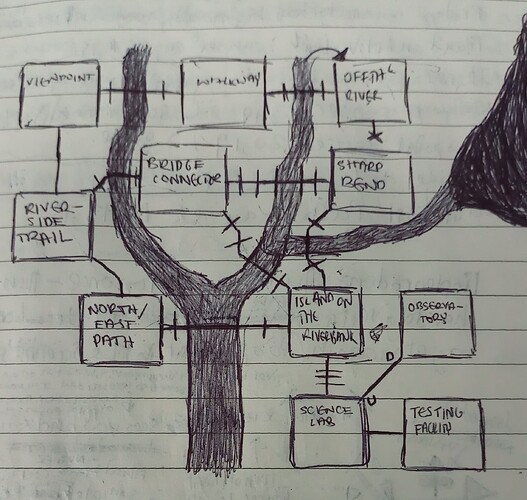 VIEWPOINT
WALKWAY
OFFAL
RIVER
BRIDGE
CONNECTOR
SHARP
BEND
RIVER-
SIDE
TRAIL
NORTH/
EAST
PATH
ISLAND ON
THE
RIVERBANK
OBSERVA-
TORY
D
U
SCIENCE
LAB
TESTING